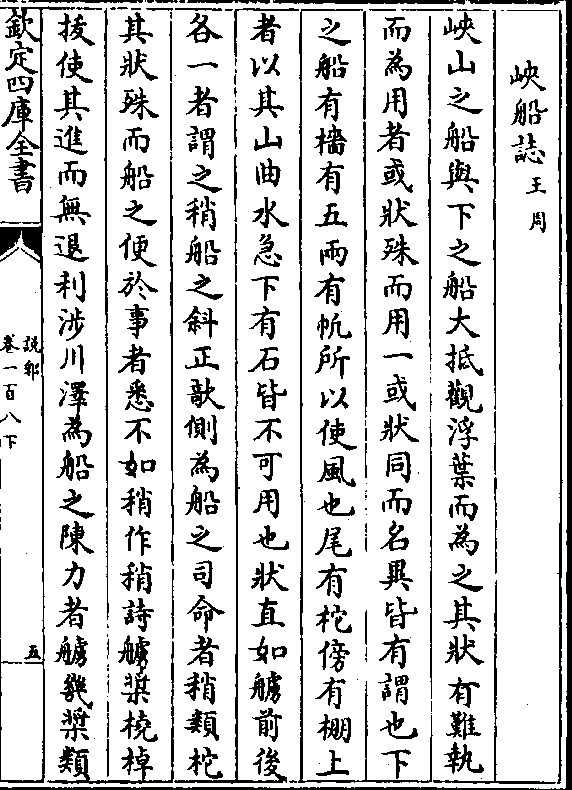 峽船誌王周
峽山之船與下之船大抵觀浮葉而為之其狀有難執
而為用者或狀殊而用一或狀同而名異皆有謂也下
之船有檣有五兩有帆所以使風也尾有柁傍有棚上
者以其山曲水急下有石皆不可用也狀直如艣前後
各一者謂之稍船之斜正欹側為船之司命者稍類柁
其狀殊而船之便於事者悉不如稍作稍詩艣槳橈棹
拔使其進而無退利涉川澤為船之陳力者艣㡬槳類
欽定四庫全書
說郛
卷一百八下
五